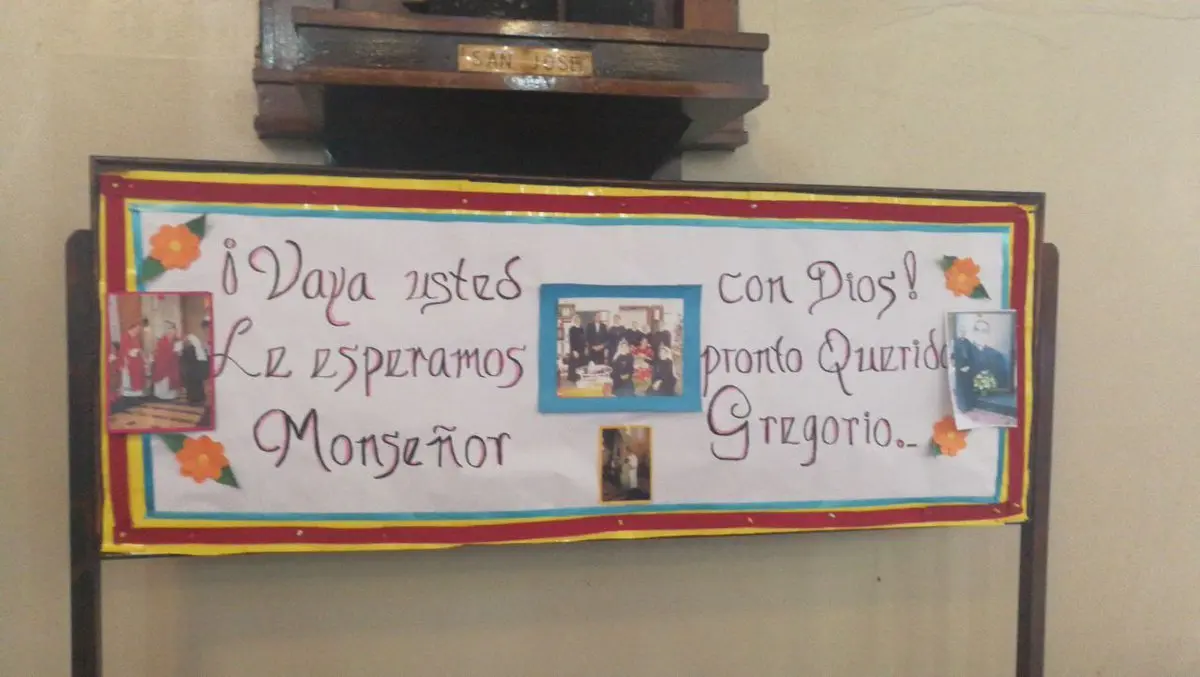 SAN JOSE
¡Vaya usted con Dios!
Le esperamos pronto Querido
Monseñor Gregorio._